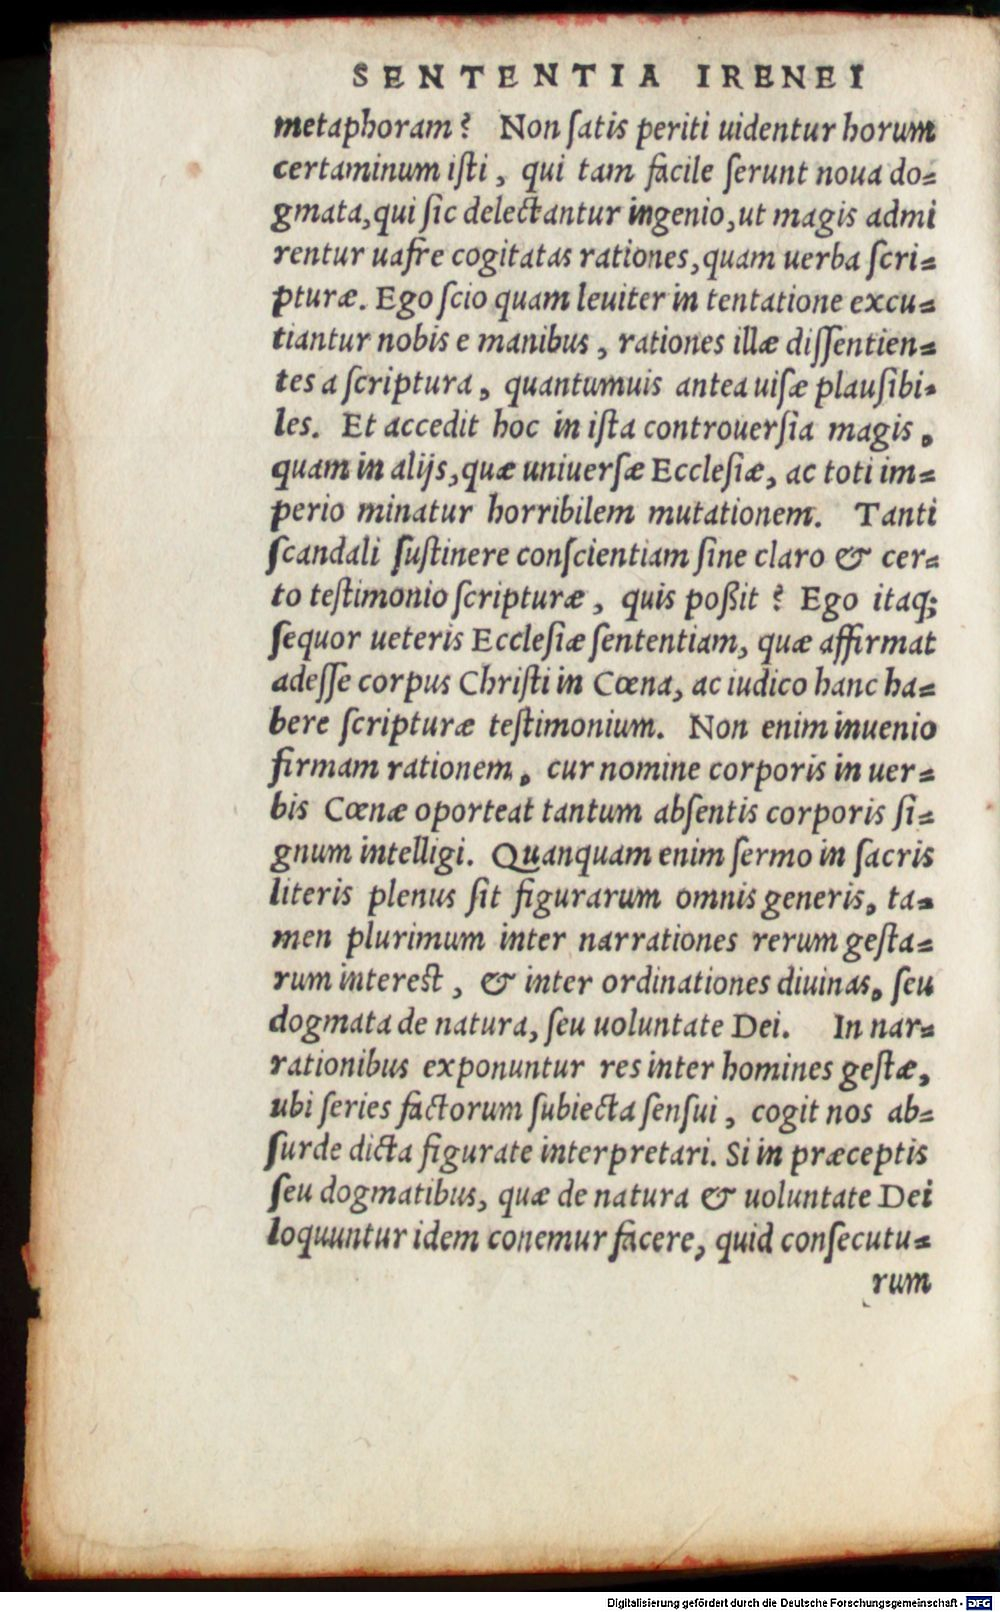 SENTENTIA IRENEI
metaphoram? Non ſatis periti uidentur horum
certaminum iſti, qui tam facile ſerunt noua do=
gmata, qui ſic delectantur ingenio, ut magis admi
rentur uafre cogitatas rationes, quam uerba ſcri=
pturæ. Ego ſcio quam leuiter in tentatione excu=
tiantur nobis e manibus, rationes illæ diſſentien=
tes a ſcriptura, quantumuis antea uiſæ plauſibi=
les. Et accedit hoc in iſta controuerſia magis,
quam in alijs, quæ uniuerſæ Eccleſiæ, ac toti im=
perio minatur horribilem mutationem. Tanti
ſcandali ſuſtinere conſcientiam ſine claro & cer=
to teſtimonio ſcripturæ, quis poßit? Ego itaq;
ſequor ueteris Eccleſiæ ſententiam, quæ affirmat
adeſſe corpus Chriſti in Cœna, ac iudico hanc ha=
bere ſcripturæ teſtimonium. Non enim inuenio
firmam rationem, cur nomine corporis in uer=
bis Cœnæ oporteat tantum abſentis corporis ſi=
gnum intelligi. Quanquam enim ſermo in ſacris
literis plenus ſit figurarum omnis generis, ta=
men plurimum inter narrationes rerum geſta=
rum intereſt, & inter ordinationes diuinas, ſeu
dogmata de natura, ſeu uoluntate Dei. In nar=
rationibus exponuntur res inter homines geſtæ,
ubi ſeries factorum ſubiecta ſenſui, cogit nos ab=
ſurde dicta figurate interpretari. Si in præceptis
ſeu dogmatibus, quæ de natura & uoluntate Dei
loquuntur idem conemur facere, quid conſecutu=
rum
Digitalisierung gefördert durch die Deutsche Forschungsgemeinschaft - DFG